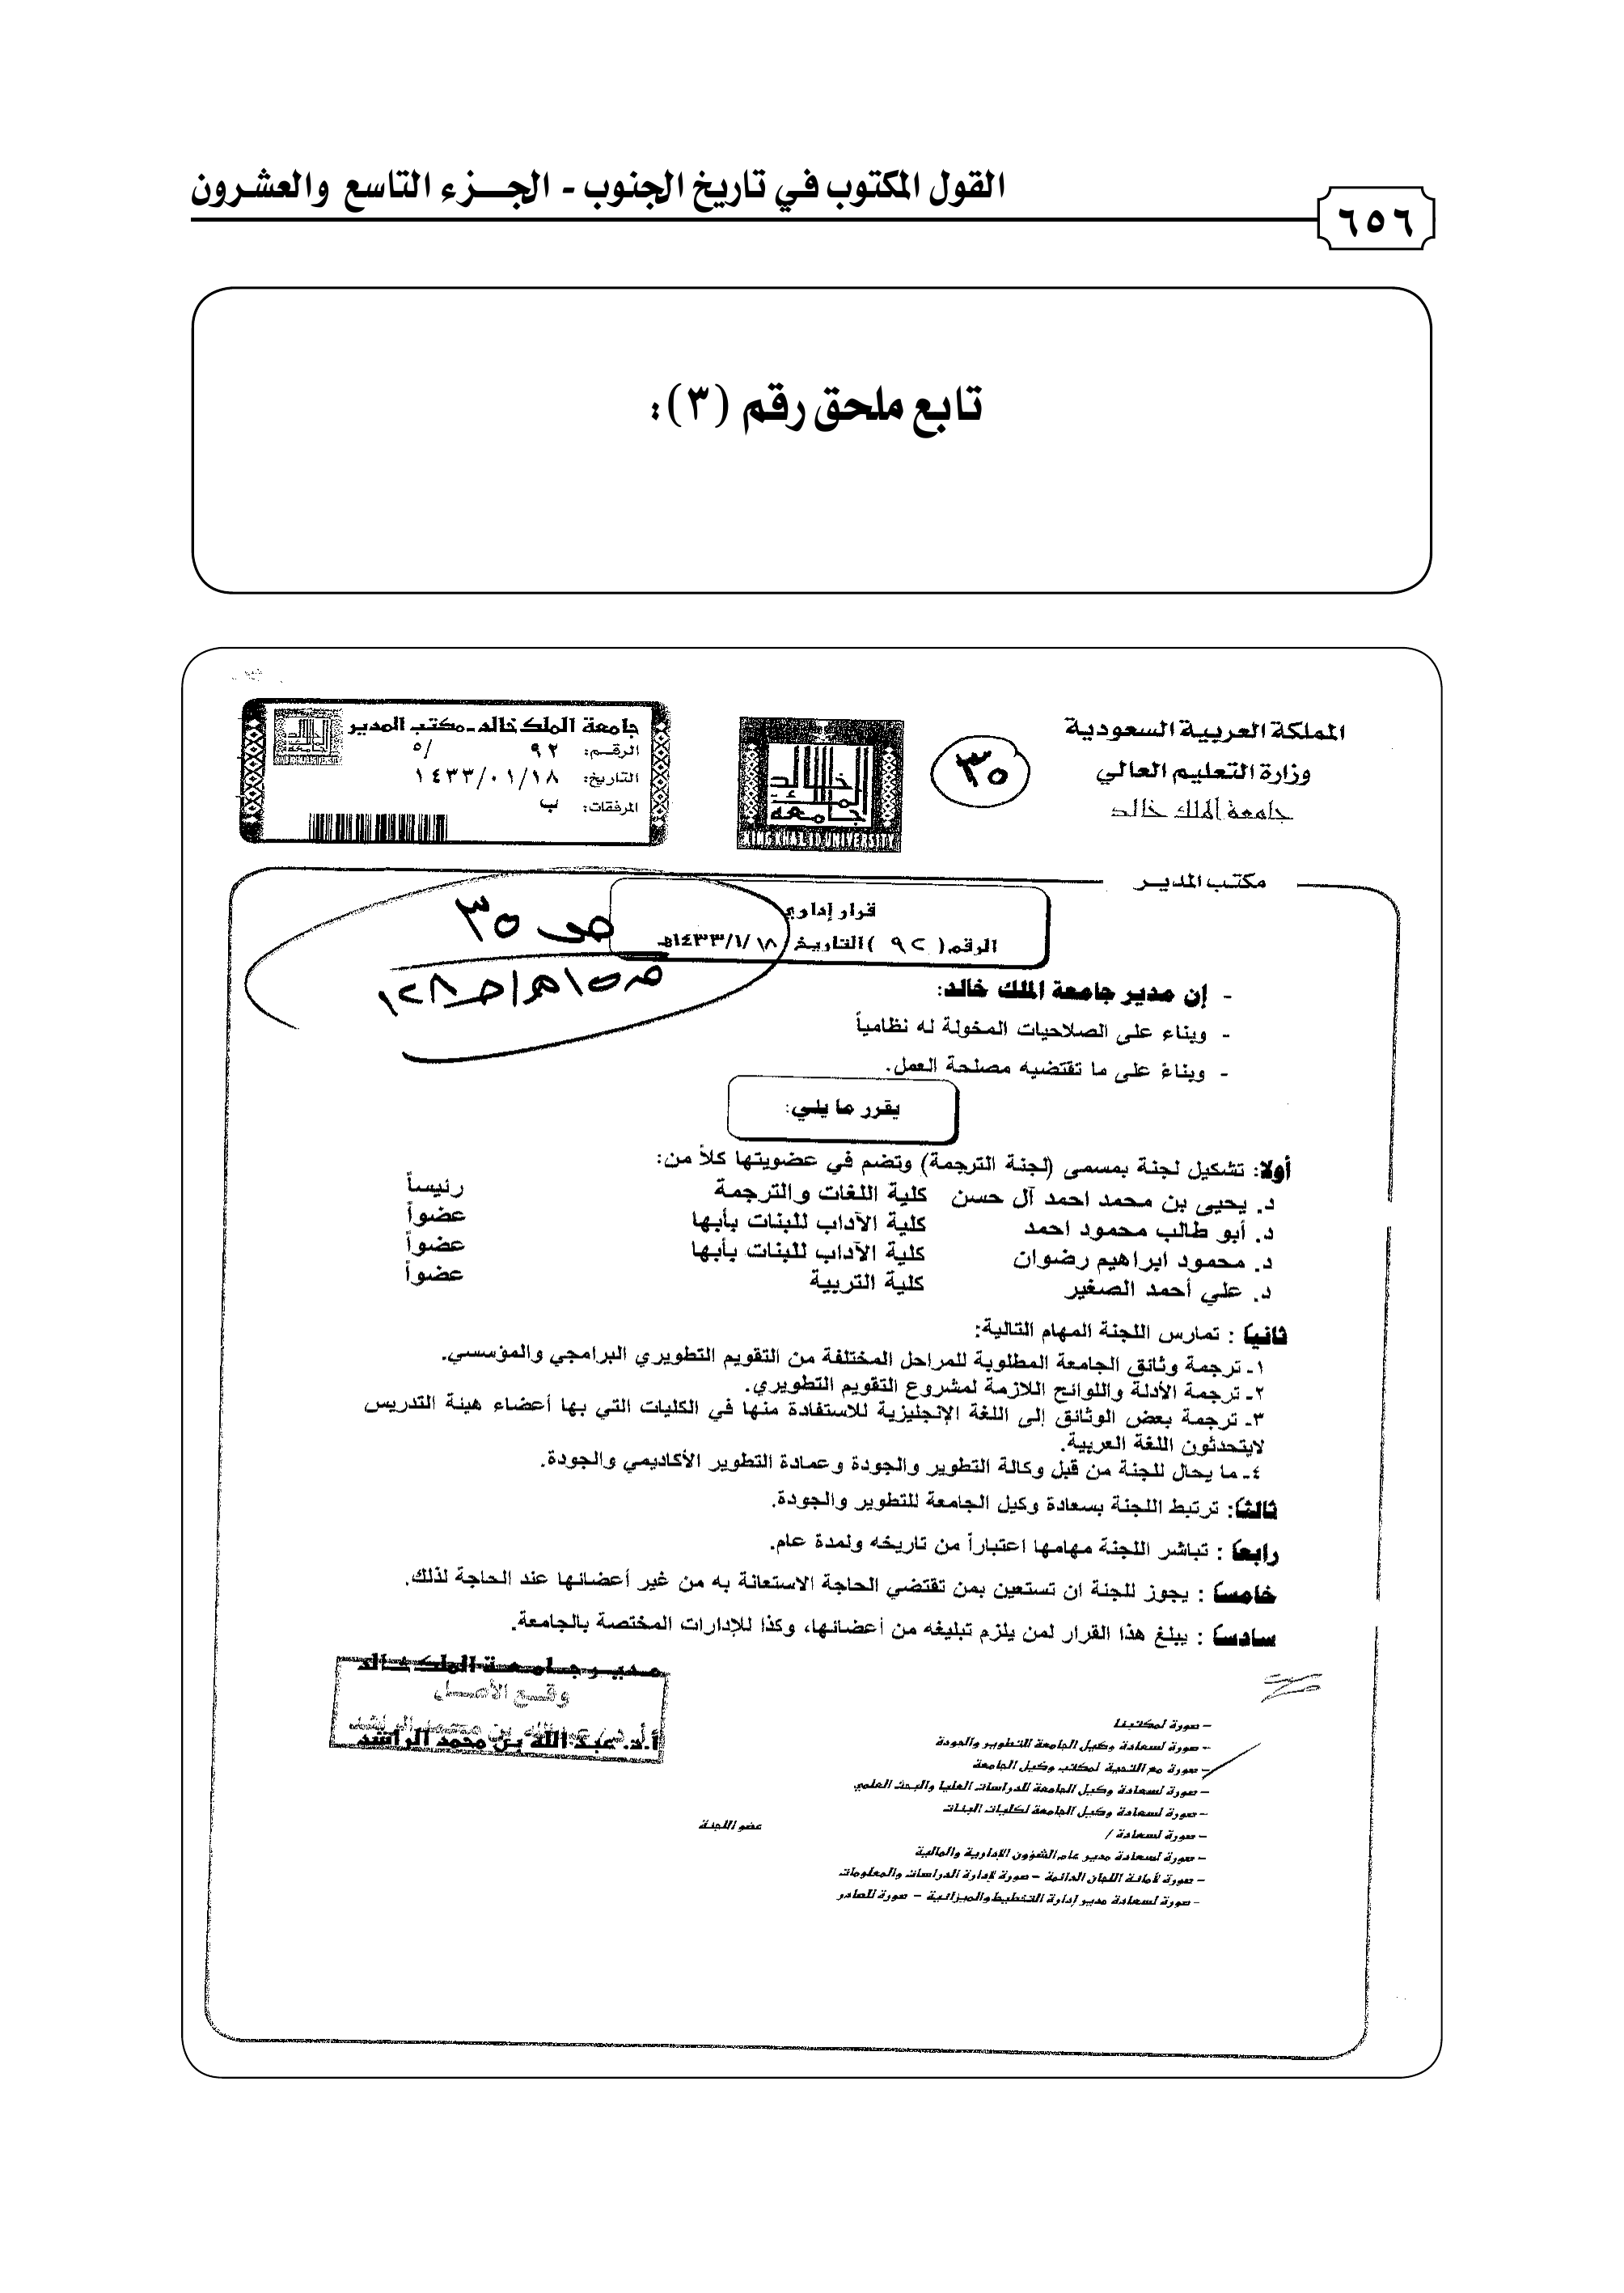 القول المكتوب في تاريخ الجنوب - الجـــزء التاسع والعشـرون
٦٥٦
تابع ملحق رقم (٣):
المملكة العربية السعودية
وزارة التعليم العالي
جامعة الملك خالد
مكتب المدير
٣٥
KING KHALID UNIVERSITY
جامعة الملك خالد
جامعة الملك خالد - مكتب المدير
الرقم: ٩٢ /٥
التاريخ: ١٤٣٣/٠١/١٨
المرفقات: ب
قرار إداري
الرقم( ٩٢ ) التاريخ ١٤٣٣/١/١٨هـ
ص ٣٥
- إن مدير جامعة الملك خالد:
- وبناء على الصلاحيات المخولة له نظامياً
- وبناءً على ما تقتضيه مصلحة العمل.
يقرر ما يلي:
أولا: تشكيل لجنة بمسمى (لجنة الترجمة) وتضم في عضويتها كلاً من:
د. يحيى بن محمد احمد آل حسن كلية اللغات والترجمة رئيساً
د. أبو طالب محمود احمد كلية الآداب للبنات بأبها عضواً
د. محمود ابراهيم رضوان كلية الآداب للبنات بأبها عضواً
د. علي أحمد الصغير كلية التربية عضواً
ثانياً : تمارس اللجنة المهام التالية:
١- ترجمة وثائق الجامعة المطلوبة للمراحل المختلفة من التقويم التطويري البرامجي والمؤسسي.
٢- ترجمة الأدلة واللوائح اللازمة لمشروع التقويم التطويري.
٣- ترجمة بعض الوثائق إلى اللغة الإنجليزية للاستفادة منها في الكليات التي بها أعضاء هيئة التدريس
لايتحدثون اللغة العربية.
٤- ما يحال للجنة من قبل وكالة التطوير والجودة وعمادة التطوير الأكاديمي والجودة.
ثالثاً: ترتبط اللجنة بسعادة وكيل الجامعة للتطوير والجودة.
رابعاً : تباشر اللجنة مهامها اعتباراً من تاريخه ولمدة عام.
خامساً : يجوز للجنة ان تستعين بمن تقتضي الحاجة الاستعانة به من غير أعضائها عند الحاجة لذلك.
سادساً : يبلغ هذا القرار لمن يلزم تبليغه من أعضائها، وكذا للإدارات المختصة بالجامعة.
مدير جامعة الملك خالد
وقع الأصل
أ.د. عبد الله بن محمد الراشد
– صورة لمكتبنا
– صورة لسعادة وكيل الجامعة للتطوير والجودة
– صورة مع التحية لمكتب وكيل الجامعة
– صورة لسعادة وكيل الجامعة للدراسات العليا والبحث العلمي
– صورة لسعادة وكيل الجامعة لكليات البنات
– صورة لسعادة / عضو اللجنة
– صورة لسعادة مدير عام الشؤون الإدارية والمالية
– صورة لأمانة اللجان الدائمة – صورة لإدارة الدراسات والمعلومات
- صورة لسعادة مدير إدارة التخطيط والميزانية – صورة للصادر